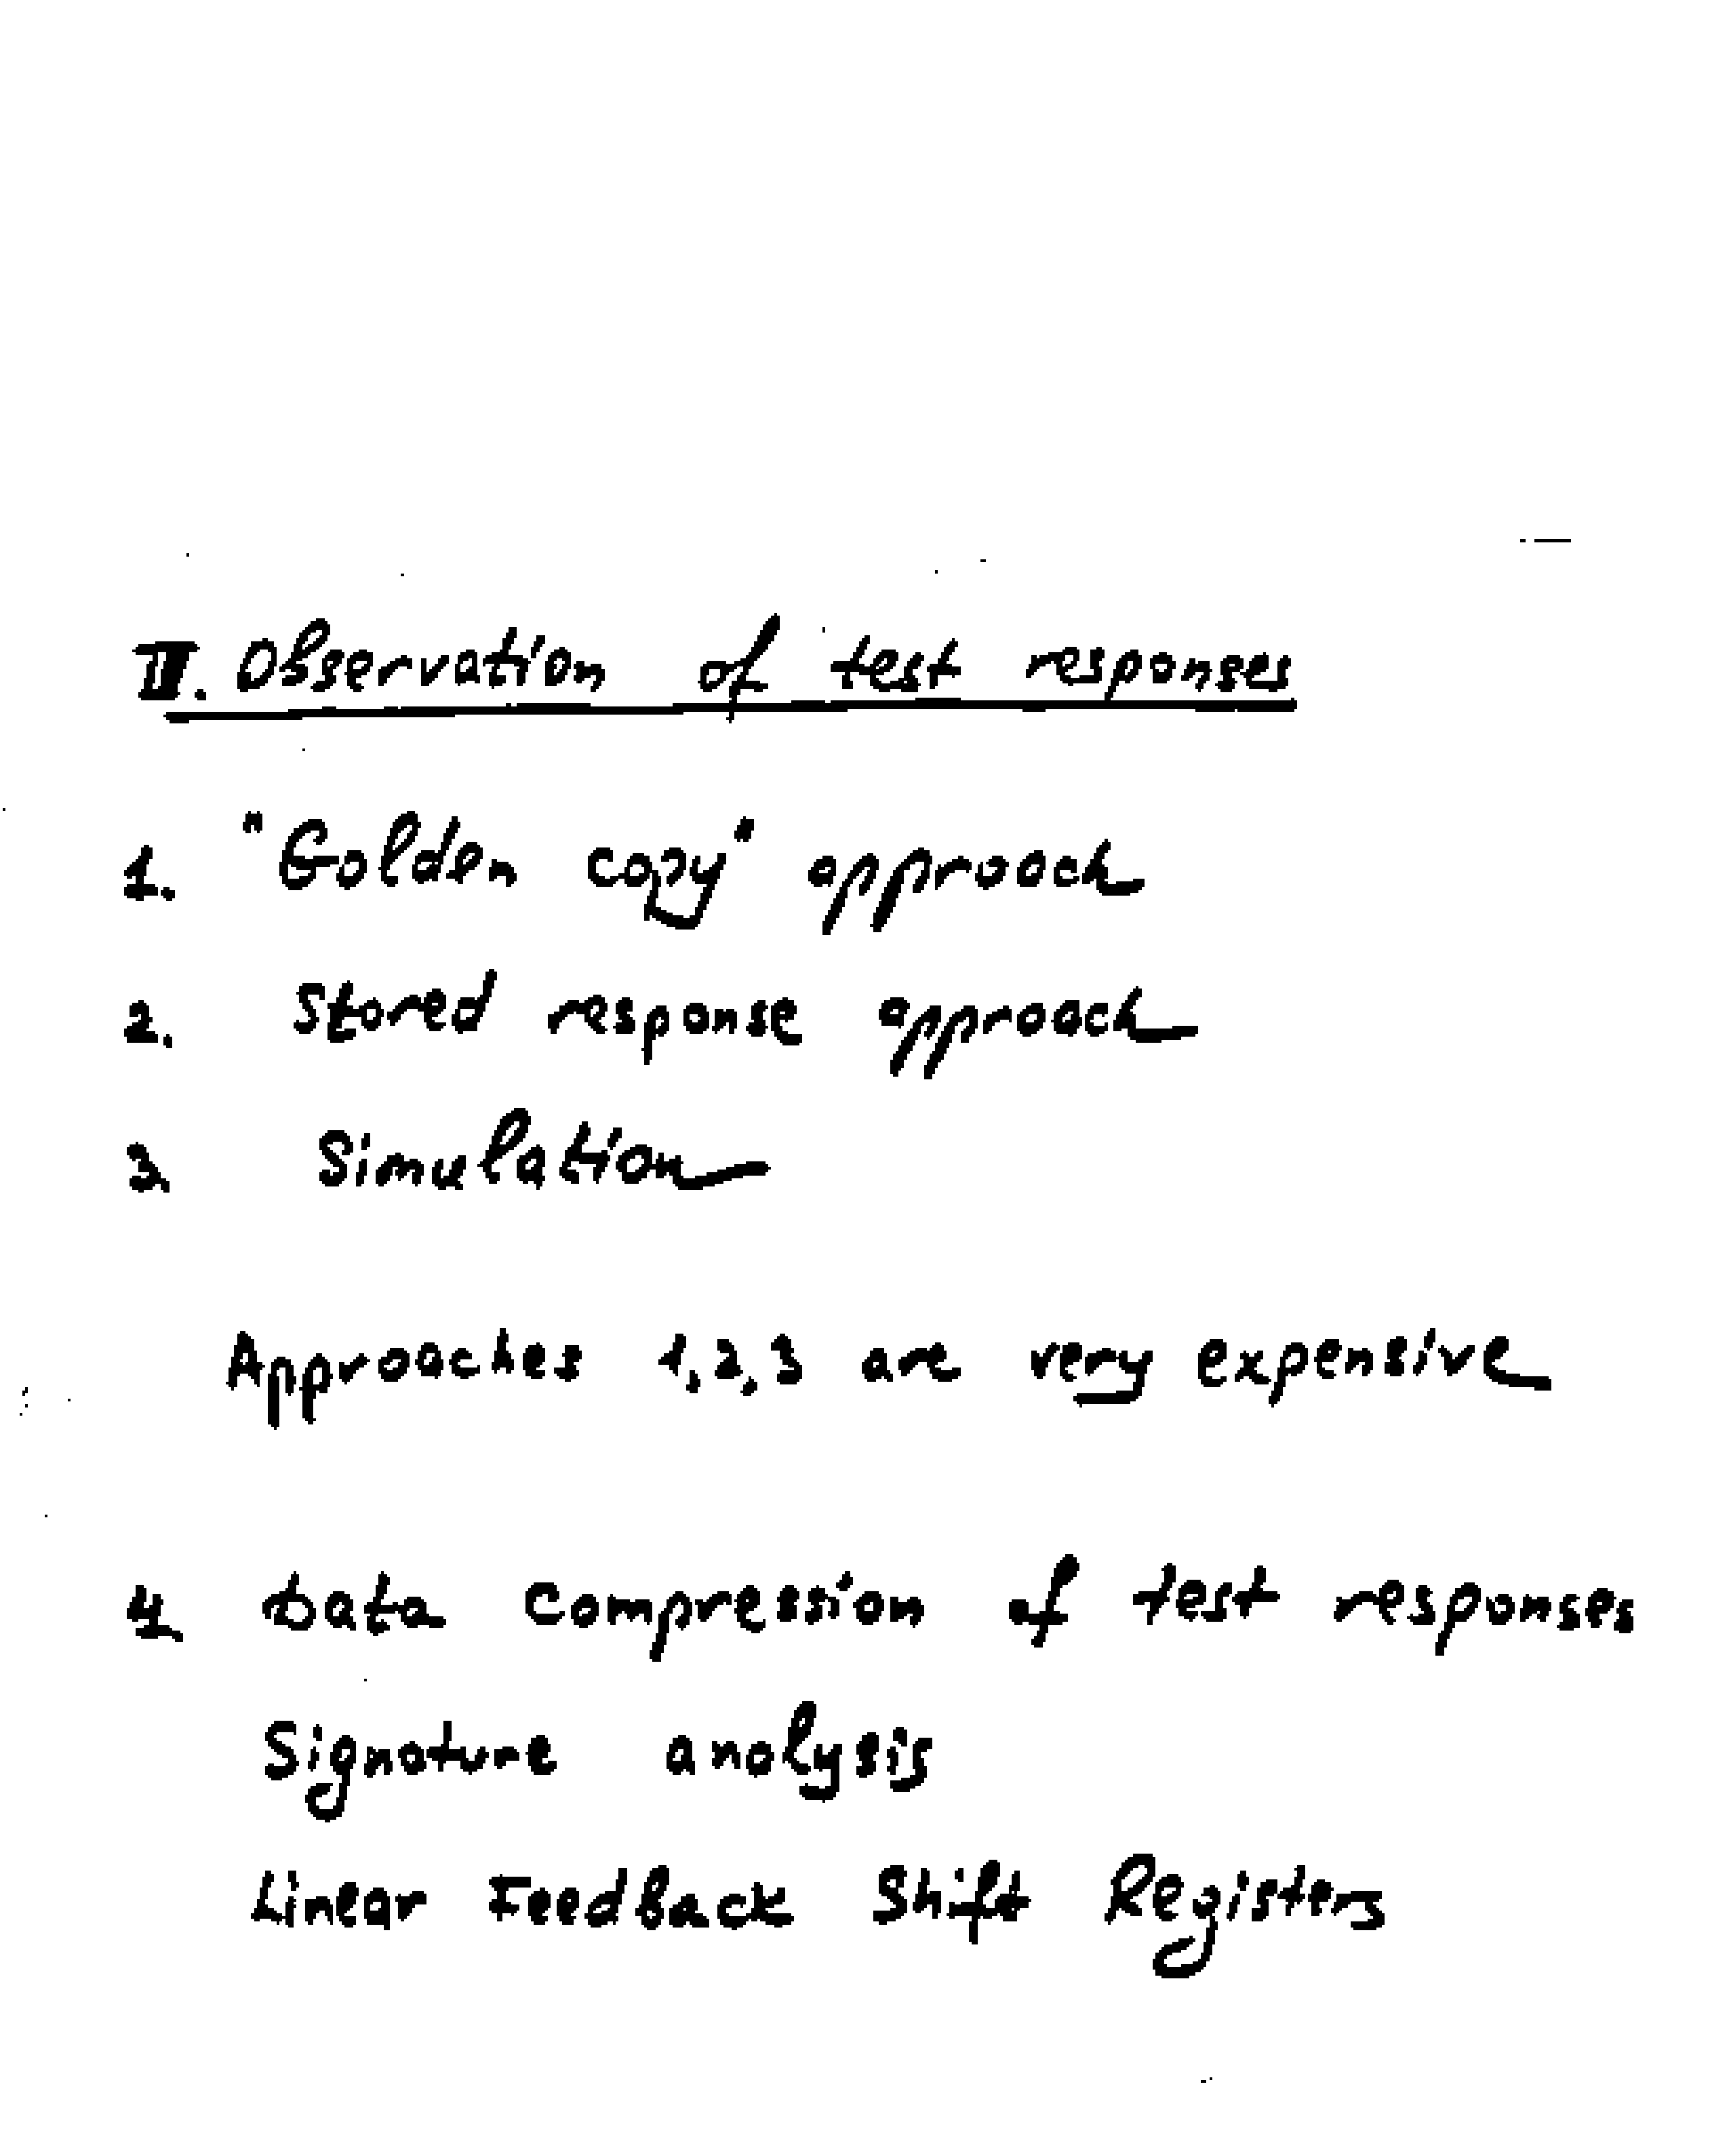 II. Observation of test responses
1. "Golden copy" approach
2. Stored response approach
3. Simulation
Approaches 1,2,3 are very expensive
4. Data compression of test responses
Signature analysis
Linear Feedback Shift Registers